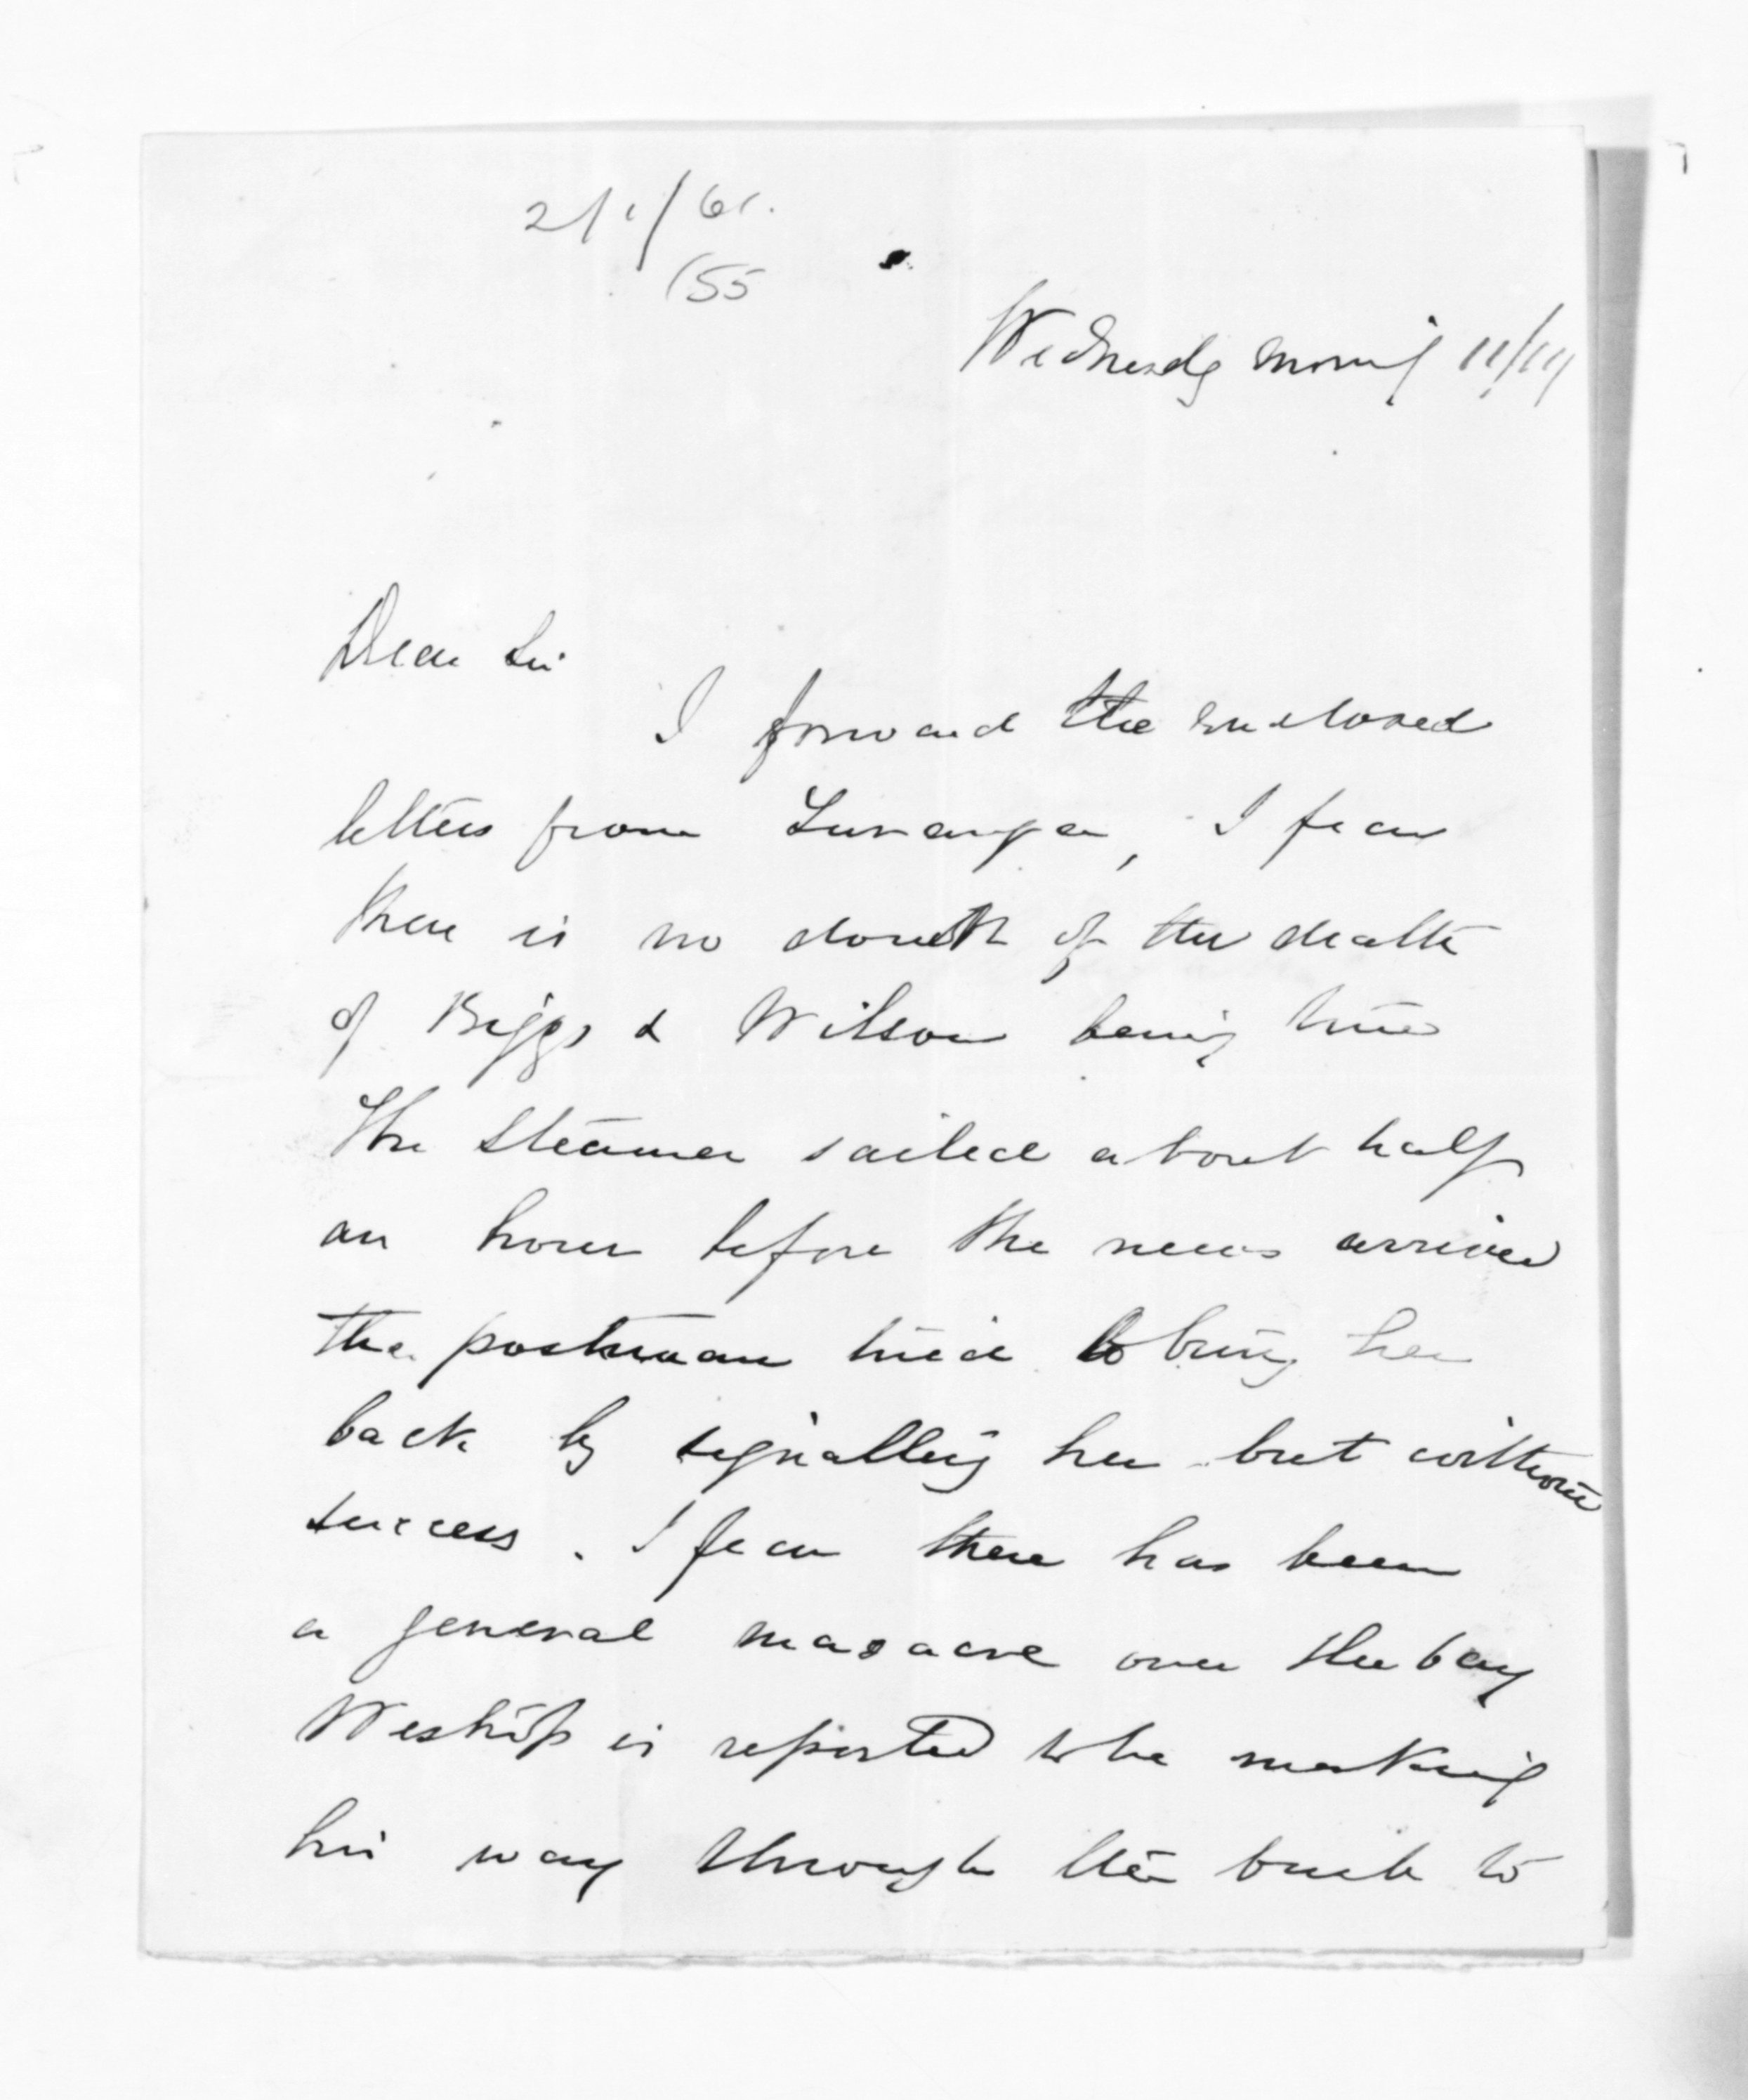 155
Wednesdy morning 11/11
Dear Sir
I forward the enclosed
letters from Turanga, I fear
there is no doubt of the death
of Biggs & Wilson being true
The Steamer sailed about half
an hour before the news arrived
the postman tried to bring her
back by signalling her but without
success. I fear there has been
a general masacre over the bay
Westrup is reported to be making
his way through the bush to